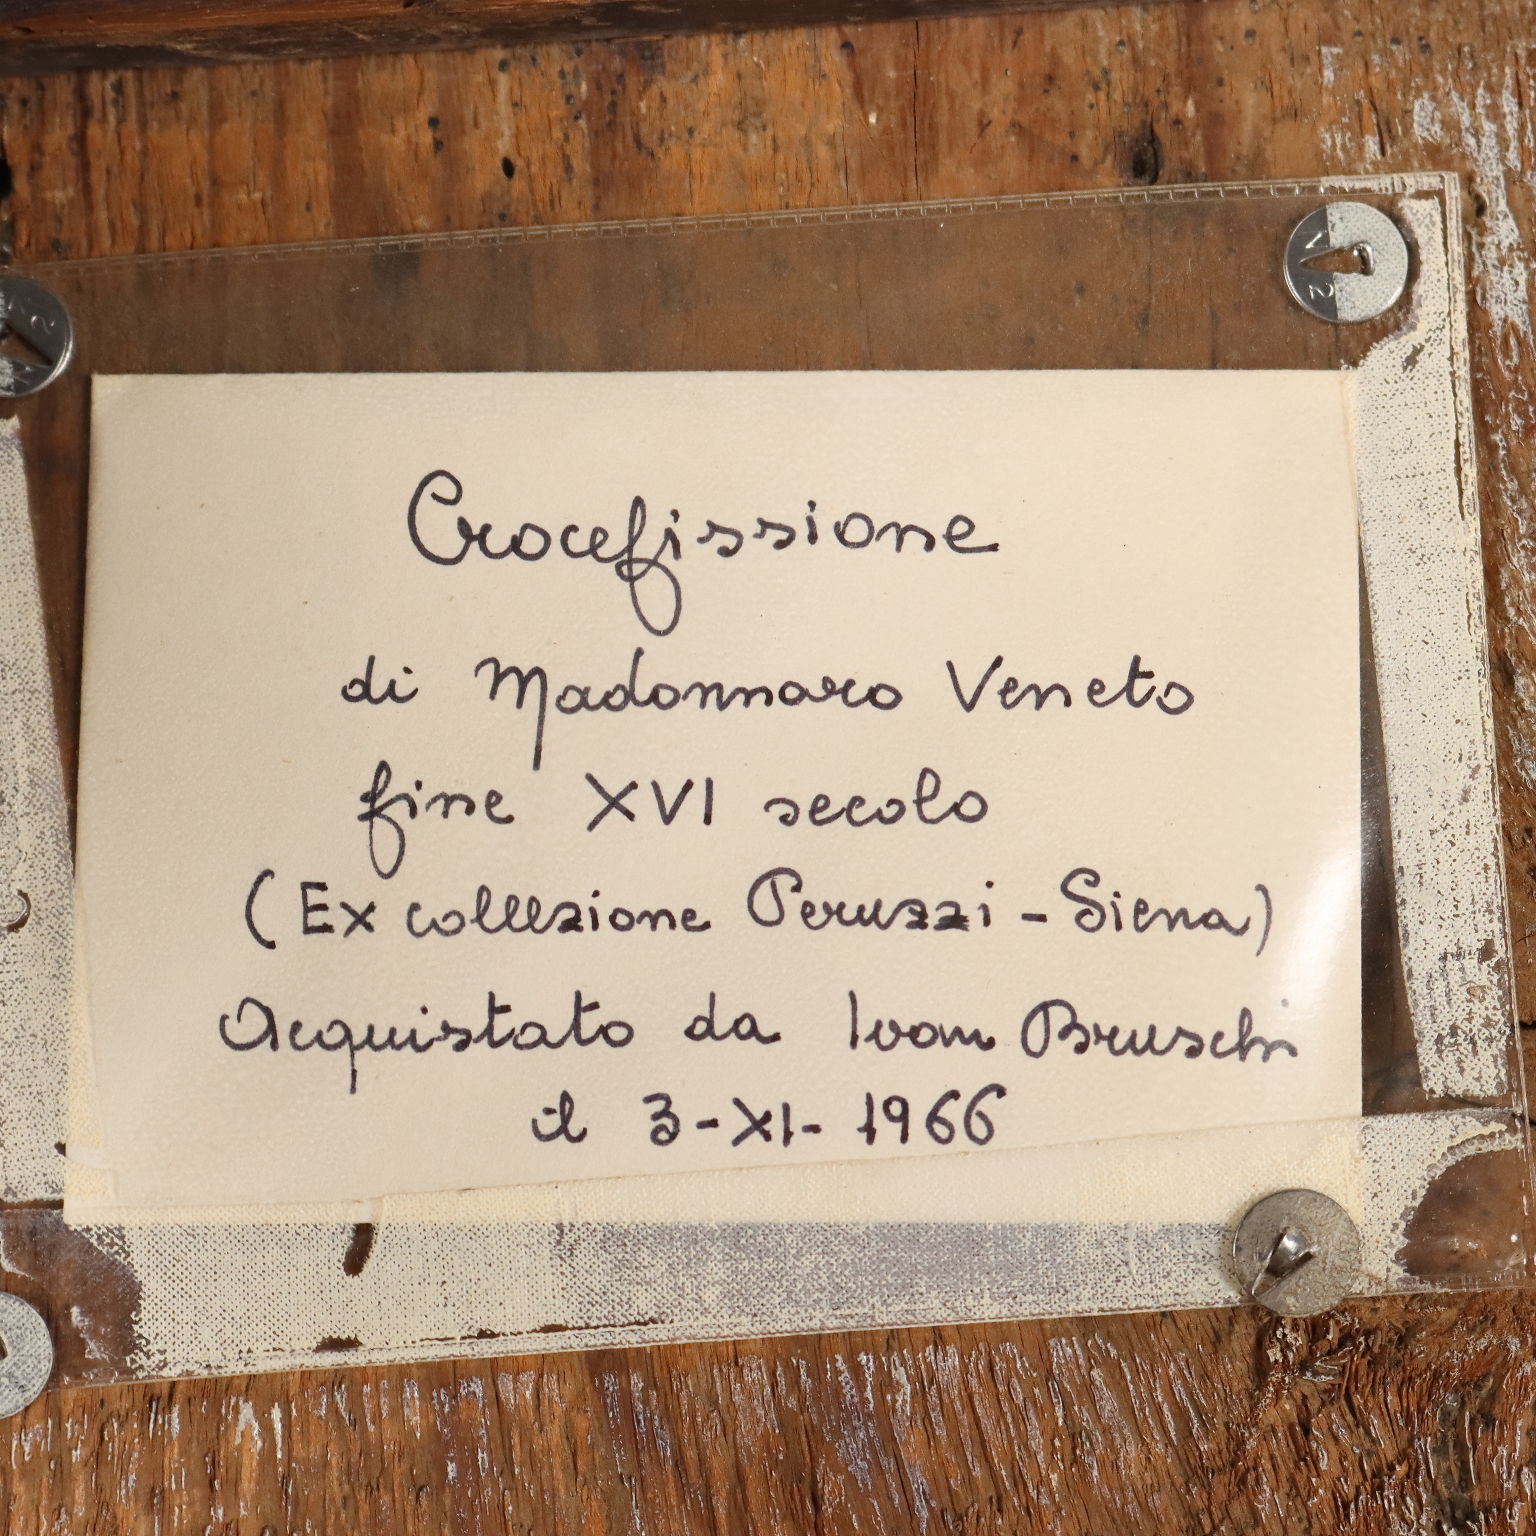 Crocefissione
di Madonnaro Veneto
fine XVI secolo
(Ex collezione Peruzzi - Siena)
Acquistato da Ivan Bruschi
il 3-XI-1966
V 2
2